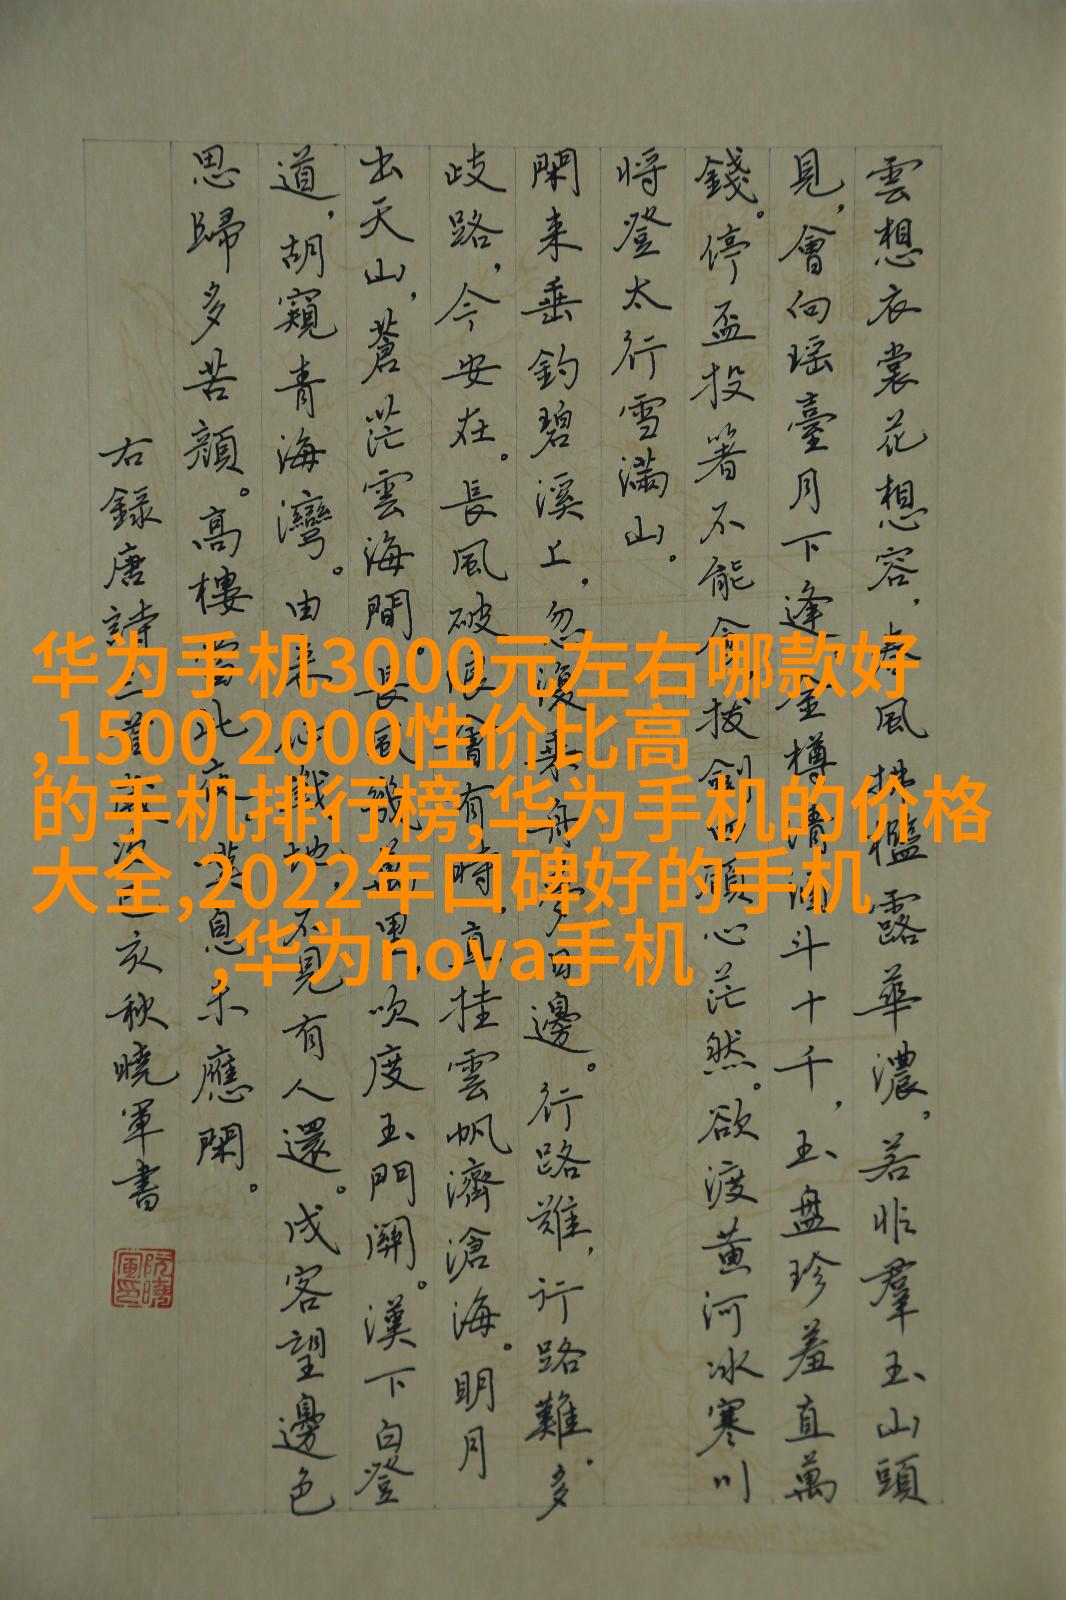 雲想衣裳花想容，春風拂檻露華濃，若非羣玉山頭
見，會向瑶臺月下逢 金樽清酒斗十千，玉盤珍羞直萬
錢。停盃投箸不能食 拔劍四顧心茫然。欲渡黄河冰寒川
将登太行雪滿山。
閑来垂釣碧溪上，忽復乘舟夢日邊。行路難，行路難。多
歧路，今安在。長風破浪會有時，直挂雲帆濟滄海。明月
出天山，蒼茫雲海間。長風幾萬里，吹度玉門關。漢下白登
道，胡窺青海灣。由来征戰地，不見有人還。戍客望邊色
思歸多苦顔。高樓當此夜，嘆息未應閑。
右録唐詩三首歲次己亥秋曉軍書
阮曉軍印
华为手机3000元左右哪款好
,1500 2000性价比高
的手机排行榜,华为手机的价格
大全,2022年口碑好的手机
,华为nova手机